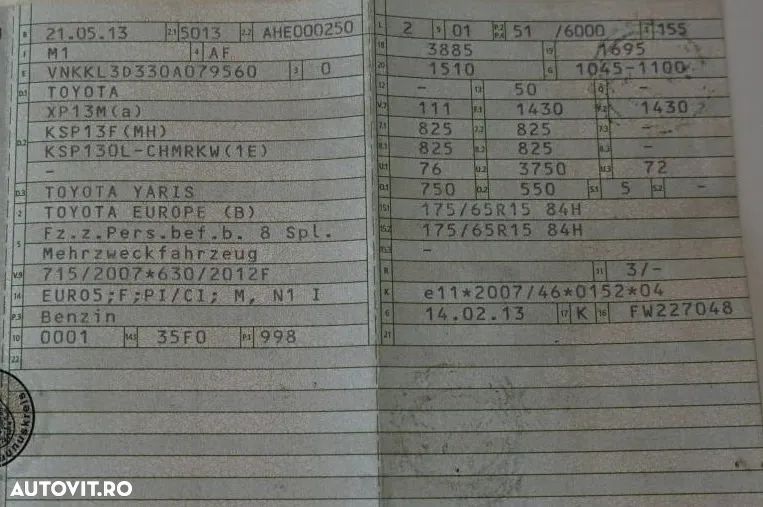 B 21.05.13 2.1 5013 2.2 AHE000250
J M1 4 AF
E VNKKL3D330A079560 3 0
D.1 TOYOTA
XP13M(a)
D.2 KSP13F(MH)
KSP130L-CHMRKW(1E)
-
D.3 TOYOTA YARIS
2 TOYOTA EUROPE (B)
5 Fz.z.Pers.bef.b. 8 Spl.
Mehrzweckfahrzeug
V.9 715/2007*630/2012F
14 EURO5;F;PI/CI; M, N1 I
P.3 Benzin
10 0001 14.1 35F0 P.1 998
22
L 2 9 01 P.2 P.4 51 /6000 T 155
18 3885 19 1695
20 1510 G 1045-1100
12 - 13 50 Q -
V.7 111 F.1 1430 F.2 1430
7.1 825 7.2 825 7.3 -
8.1 825 8.2 825 8.3 -
U.1 76 U.2 3750 U.3 72
O.1 750 O.2 550 S.1 5 S.2 -
15.1 175/65R15 84H
15.2 175/65R15 84H
15.3 -
R 11 3/-
K e11*2007/46*0152*04
6 14.02.13 17 K 16 FW227048
21
AUTOVIT.RO